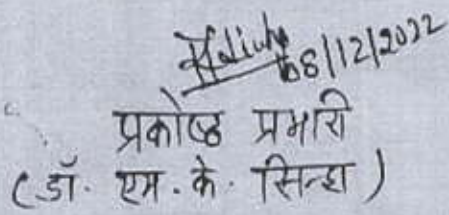 08/12/2022
प्रकोष्ठ प्रभारी
(डॉ. एम. के. सिन्हा)